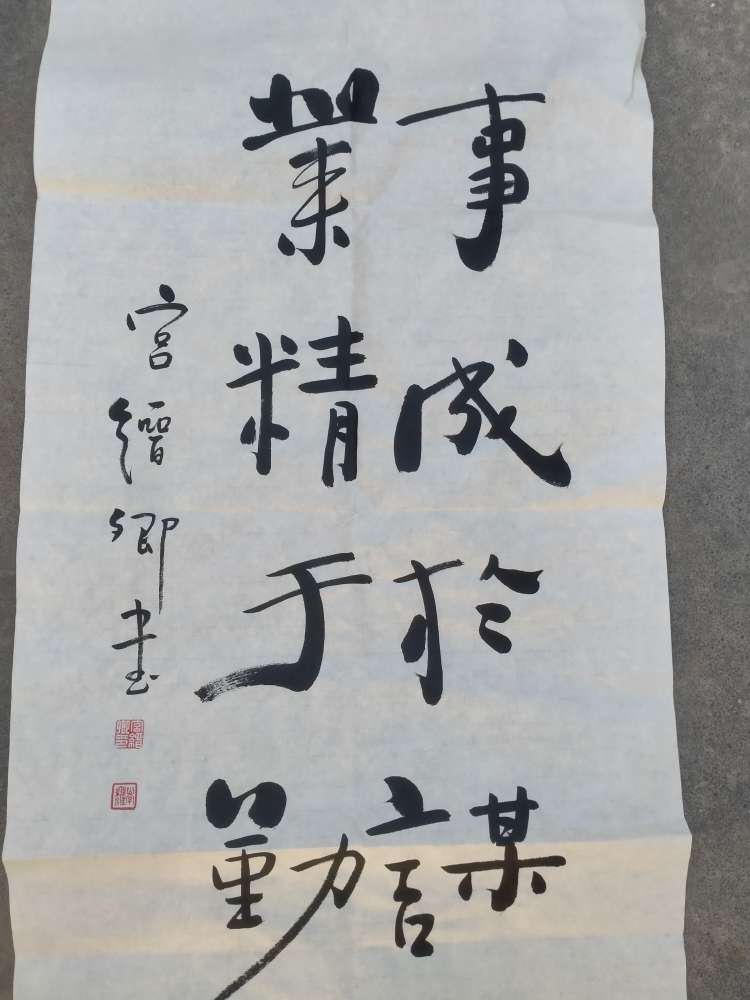 事成於謀
業精于勤
宫縉卿书